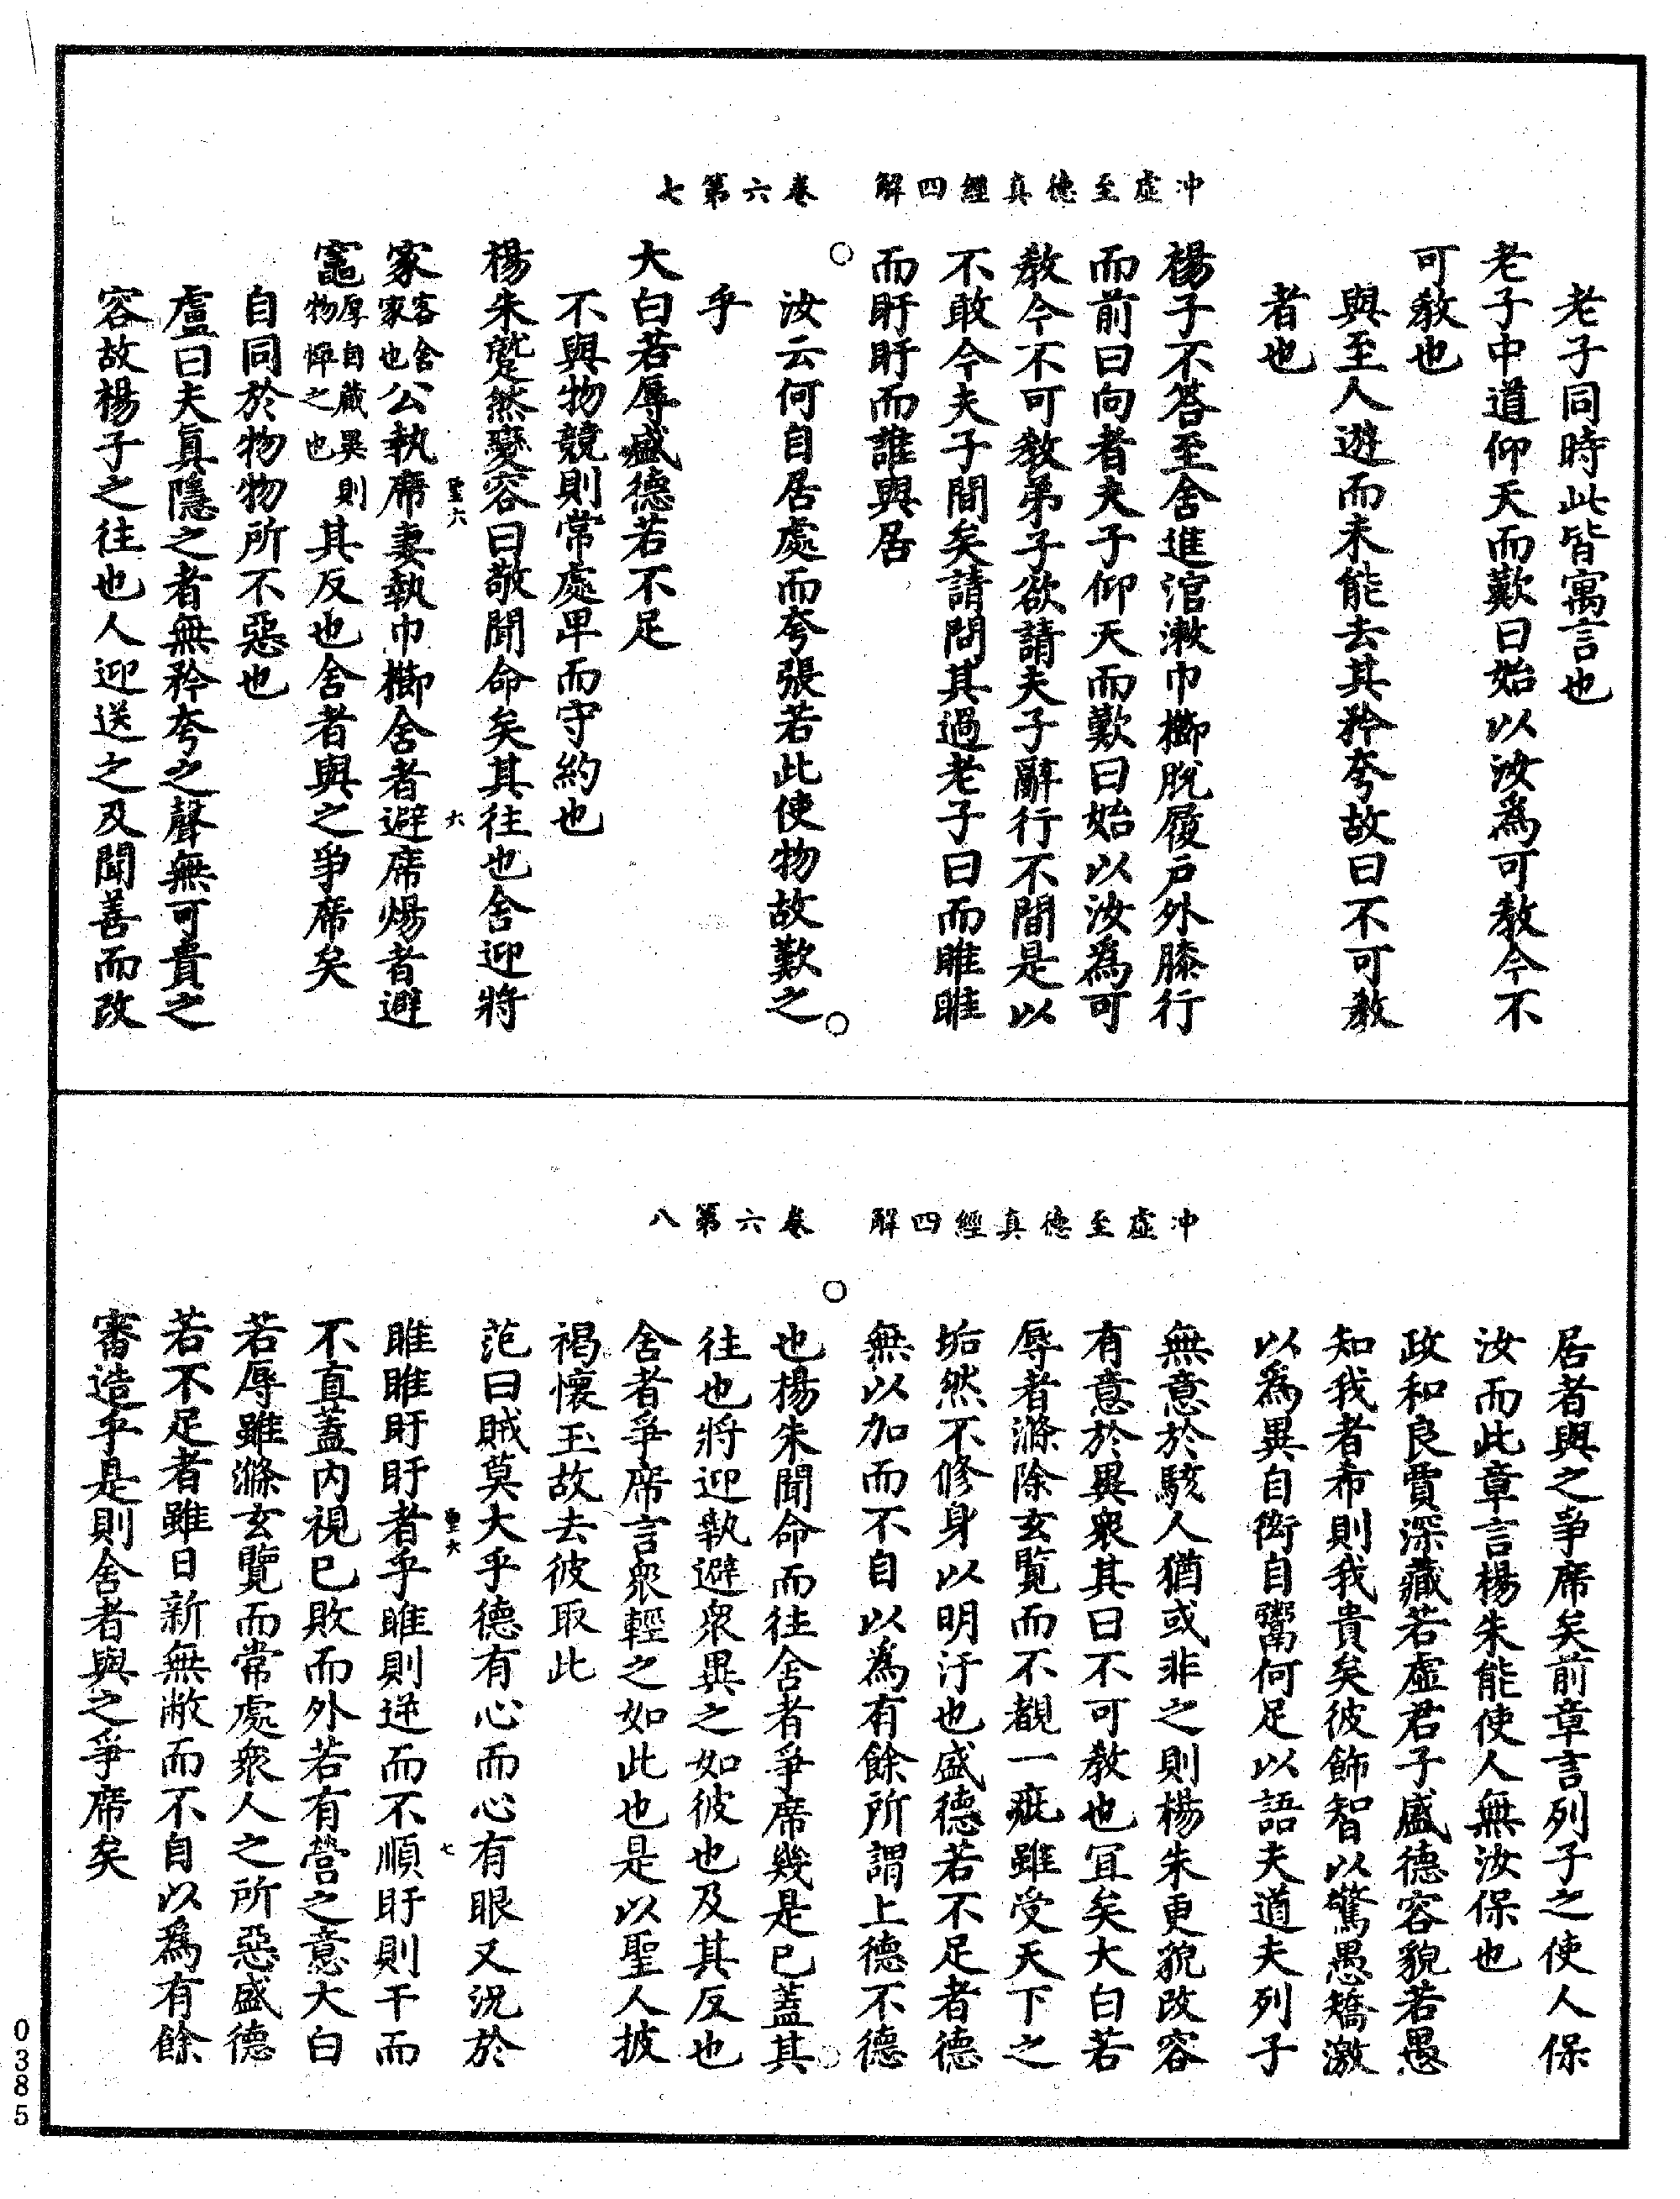 冲虛至德真經四解　卷六第七
老子同時此皆寓言也
老子中道仰天而歎曰始以汝爲可教今不
可教也
與至人遊而未能去其矜夸故曰不可教
者也
楊子不答至舍進涫漱巾櫛脫履戶外膝行
而前曰向者夫子仰天而歎曰始以汝爲可
教今不可教弟子欲請夫子辭行不間是以
不敢今夫子間矣請問其過老子曰而睢睢
而盱盱而誰與居
汝云何自居處而夸張若此使物故歎之
乎
大白若辱盛德若不足
不與物競則常處卑而守約也
楊朱蹵然變容曰敬聞命矣其往也舍迎將
家客舍家也公執席妻執巾櫛舍者避席煬者避
竈厚自藏異則物憚之也其反也舍者與之爭席矣
自同於物物所不惡也
盧曰夫眞隱之者無矜夸之聲無可貴之
容故楊子之往也人迎送之及聞善而改
聖六
六
冲虛至德真經四解　卷六第八
居者與之爭席矣前章言列子之使人保
汝而此章言楊朱能使人無汝保也
政和良賈深藏若虛君子盛德容貌若愚
知我者希則我貴矣彼飾智以驚愚矯激
以爲異自衒自鬻何足以語夫道夫列子
無意於駭人猶或非之則楊朱更貌改容
有意於異衆其曰不可教也宜矣大白若
辱者滌除玄覽而不覩一疵雖受天下之
垢然不修身以明汙也盛德若不足者德
無以加而不自以為有餘所謂上德不德
也楊朱聞命而往舍者爭席幾是已蓋其
往也將迎執避衆異之如彼也及其反也
舍者爭席言衆輕之如此也是以聖人披
褐懷玉故去彼取此
范曰賊莫大乎德有心而心有眼又況於
睢睢盱盱者乎睢則逆而不順盱則干而
不直蓋内視已敗而外若有營之意大白
若辱雖滌玄覽而常處衆人之所惡盛德
若不足者雖日新無敝而不自以爲有餘
審造乎是則舍者與之爭席矣
聖六
七
0385